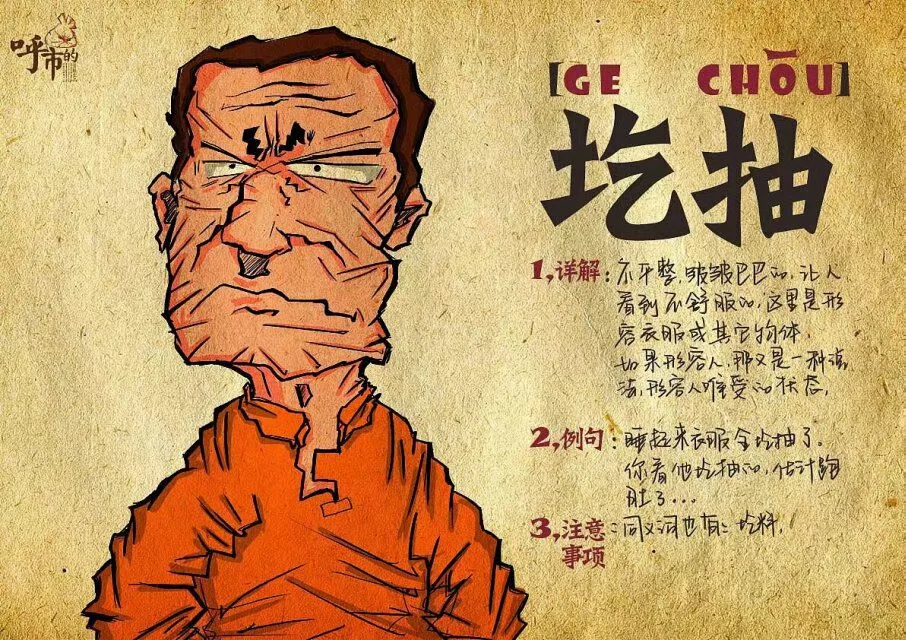 呼市的
[GE CHŌU]
圪抽
1,详解：不平整,皱皱巴巴的,让人
看到不舒服的,这里是形
容衣服或其它物体,
如果形容人,那又是一种演
法,形容人难受的状态,
2,例句：睡起来衣服全圪抽了.
你看他圪抽的,估计跑
肚了...
3,注意
事项：同义词也有：圪料,